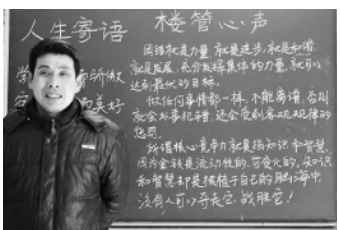 人生寄语 楼管心声
而骄傲
美好
团结就是力量 就是进步,就是和谐,
就是发展,充分发挥集体的力量,就可以
达到最优的目标。
做任何事情都一样,不能离谱,否则
就会出事犯错,还会受到客观规律的
惩罚。
所谓核心竞争力就是指知识和智慧,
因为金钱是流动性的,可变化的,知识
和智慧却是根植于自己的脑海中
没有人可以夺走它,战胜它!